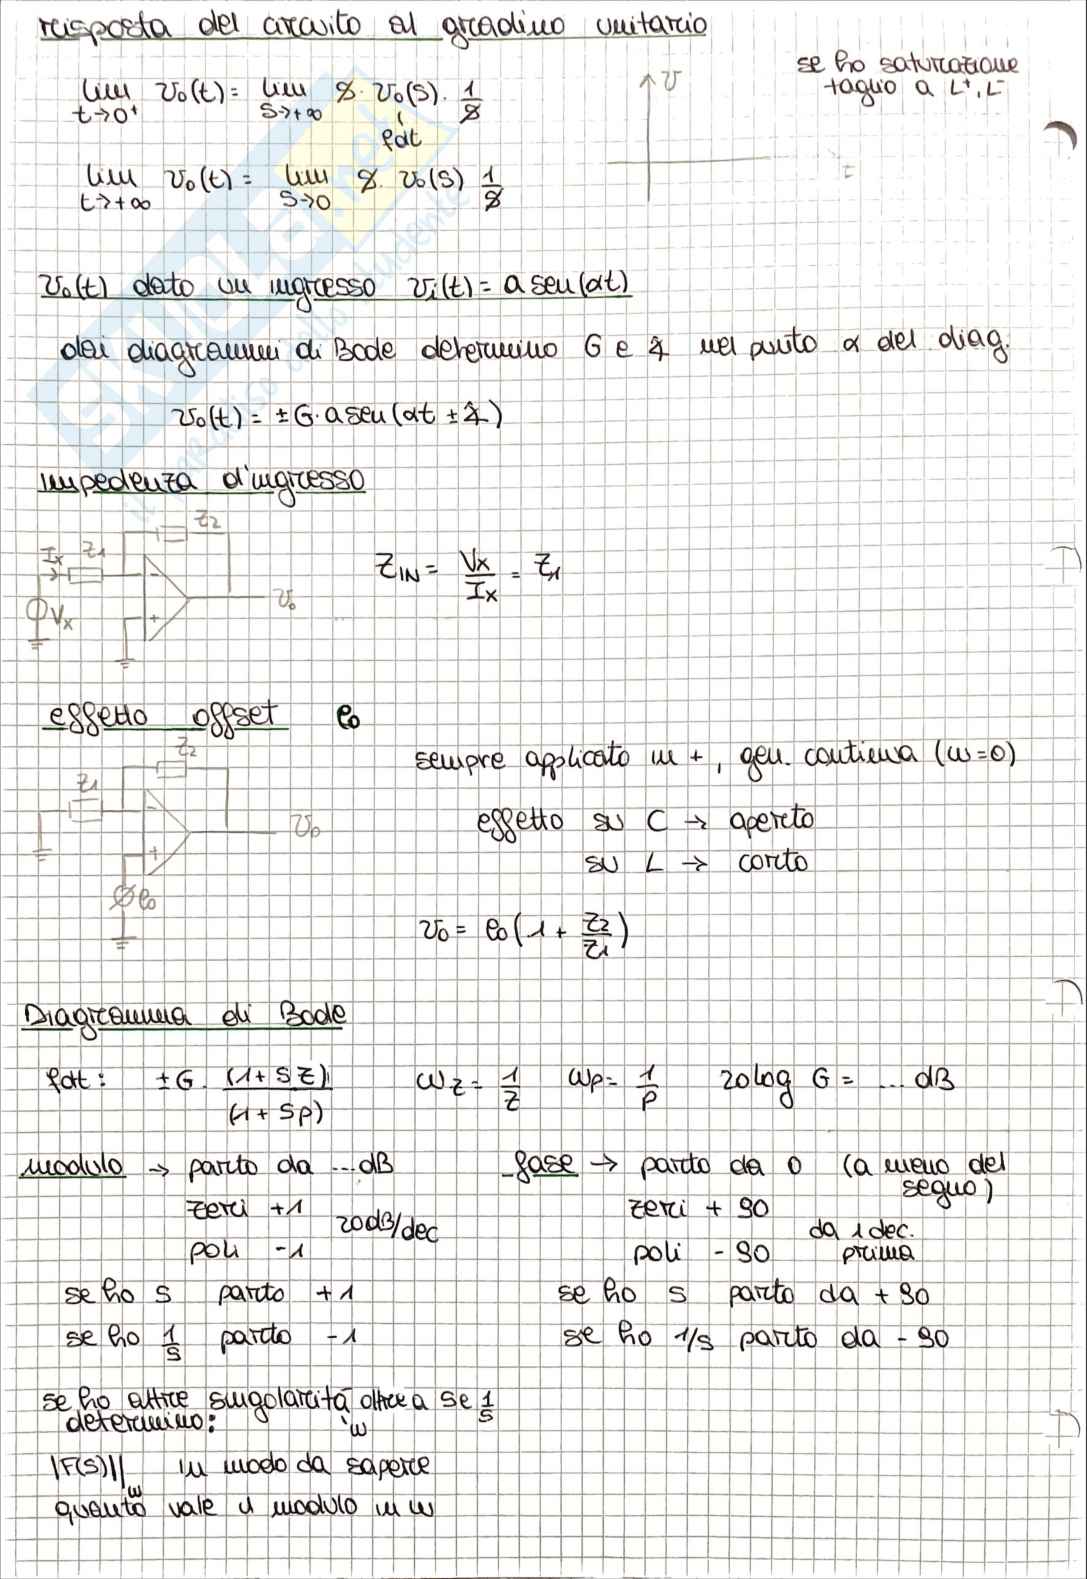 risposta del circuito al gradino unitario
se ho saturazione
taglio a L⁺, L⁻
lim v₀(t) = lim s · v₀(s) · 1/s
t→0⁺ s→+∞
fdt
v
lim v₀(t) = lim s · v₀(s) 1/s
t→+∞ s→0
v₀(t) dato un ingresso vᵢ(t) = a sen(αt)
dai diagrammi di Bode determino G e ∡ nel punto α del diag.
v₀(t) = ±G · a sen(αt ± ∡)
impedenza d'ingresso
Z2
Ix Z1
Z_IN = Vx/Ix = Z1
v₀
Vx
effetto offset e₀
Z2
sempre applicato in +, gen. continua (ω=0)
Z1
v₀
effetto su C → aperto
su L → corto
e₀
v₀ = e₀(1 + Z2/Z1)
Diagramma di Bode
fdt: ±G · (1+sz)/(1+sp) ωz = 1/z ωp = 1/p 20log G = ... dB
modulo → parto da ...dB
zeri +1
poli -1
20dB/dec
se ho s parto +1
se ho 1/s parto -1
fase → parto da 0 (a meno del
segno)
zeri + 90
poli - 90
da 1 dec.
prima
se ho s parto da + 90
se ho 1/s parto da - 90
se ho altre singolarità oltre a s e 1/s
determino: ω
|F(s)||ω in modo da sapere
quanto vale il modulo in ω
SKUOLA.net
il paradiso dello studente